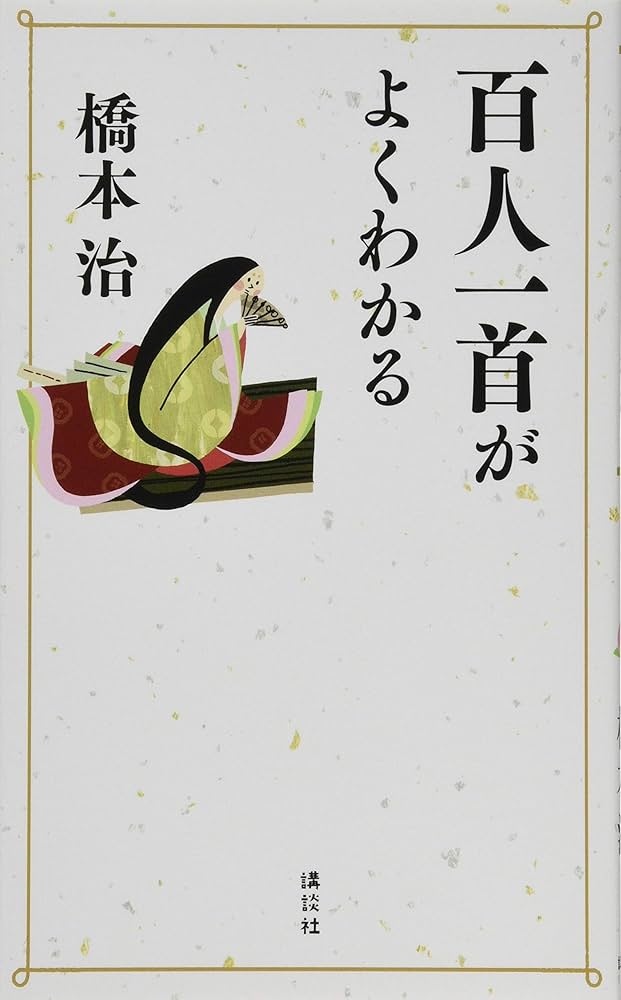 百人一首が
よくわかる
橋本 治
講談社